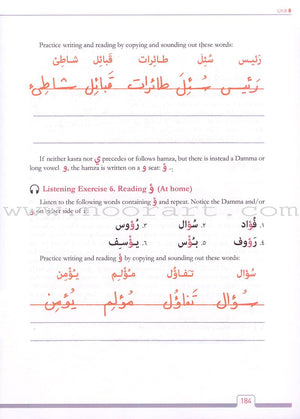 Unit 8
Practice writing and reading by copying and sounding out these words:
رَئيس سُئِلَ طائِرات قَبائِل شاطِئ
رَئيس سُئِلَ طائِرات قَبائِل شاطِئ
If neither kasra nor ي precedes or follows hamza, but there is instead a Damma or
long vowel و, the hamza is written on a و seat: ؤ.
Listening Exercise 6. Reading ؤ (At home)
Listen to the following words containing ؤ and repeat. Notice the Damma and/or
و on either side of it.
١. فُؤاد ٢. سُؤال ٣. رُؤوس
٤. رَؤوف ٥. بُؤْس ٦. يؤسِف
Practice writing and reading ؤ by copying and sounding out these words:
سُؤال تَفاؤُل مُؤلِم يُؤمِن
سُؤال تَفاؤُل مُؤلِم يُؤمِن
184
www.noorart.com